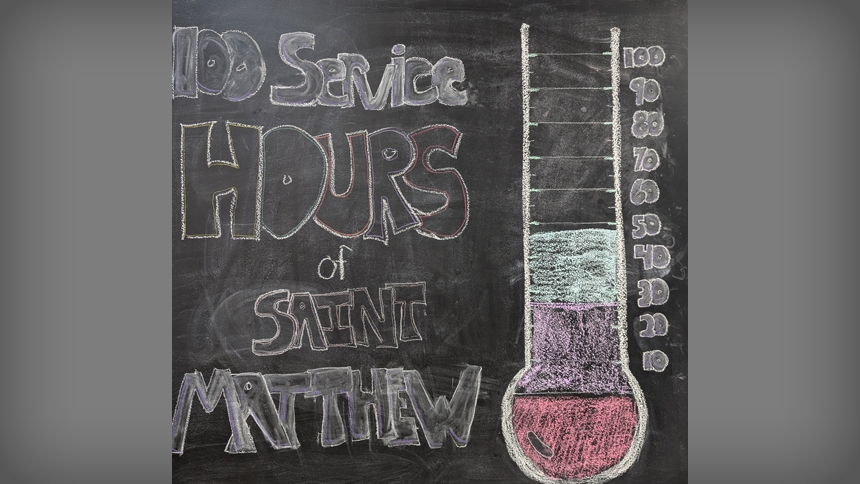 100 Service
HOURS
of
SAINT
MATTHEW
100
90
80
70
60
50
40
30
20
10